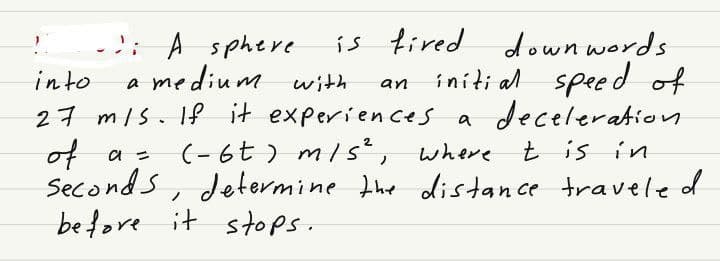 : A sphere is fired downwords
into a medium with an initial speed of
27 m/s. If it experiences a deceleration
of a = (-6t) m/s², where t is in
Seconds, determine the distance traveled
before it stops.